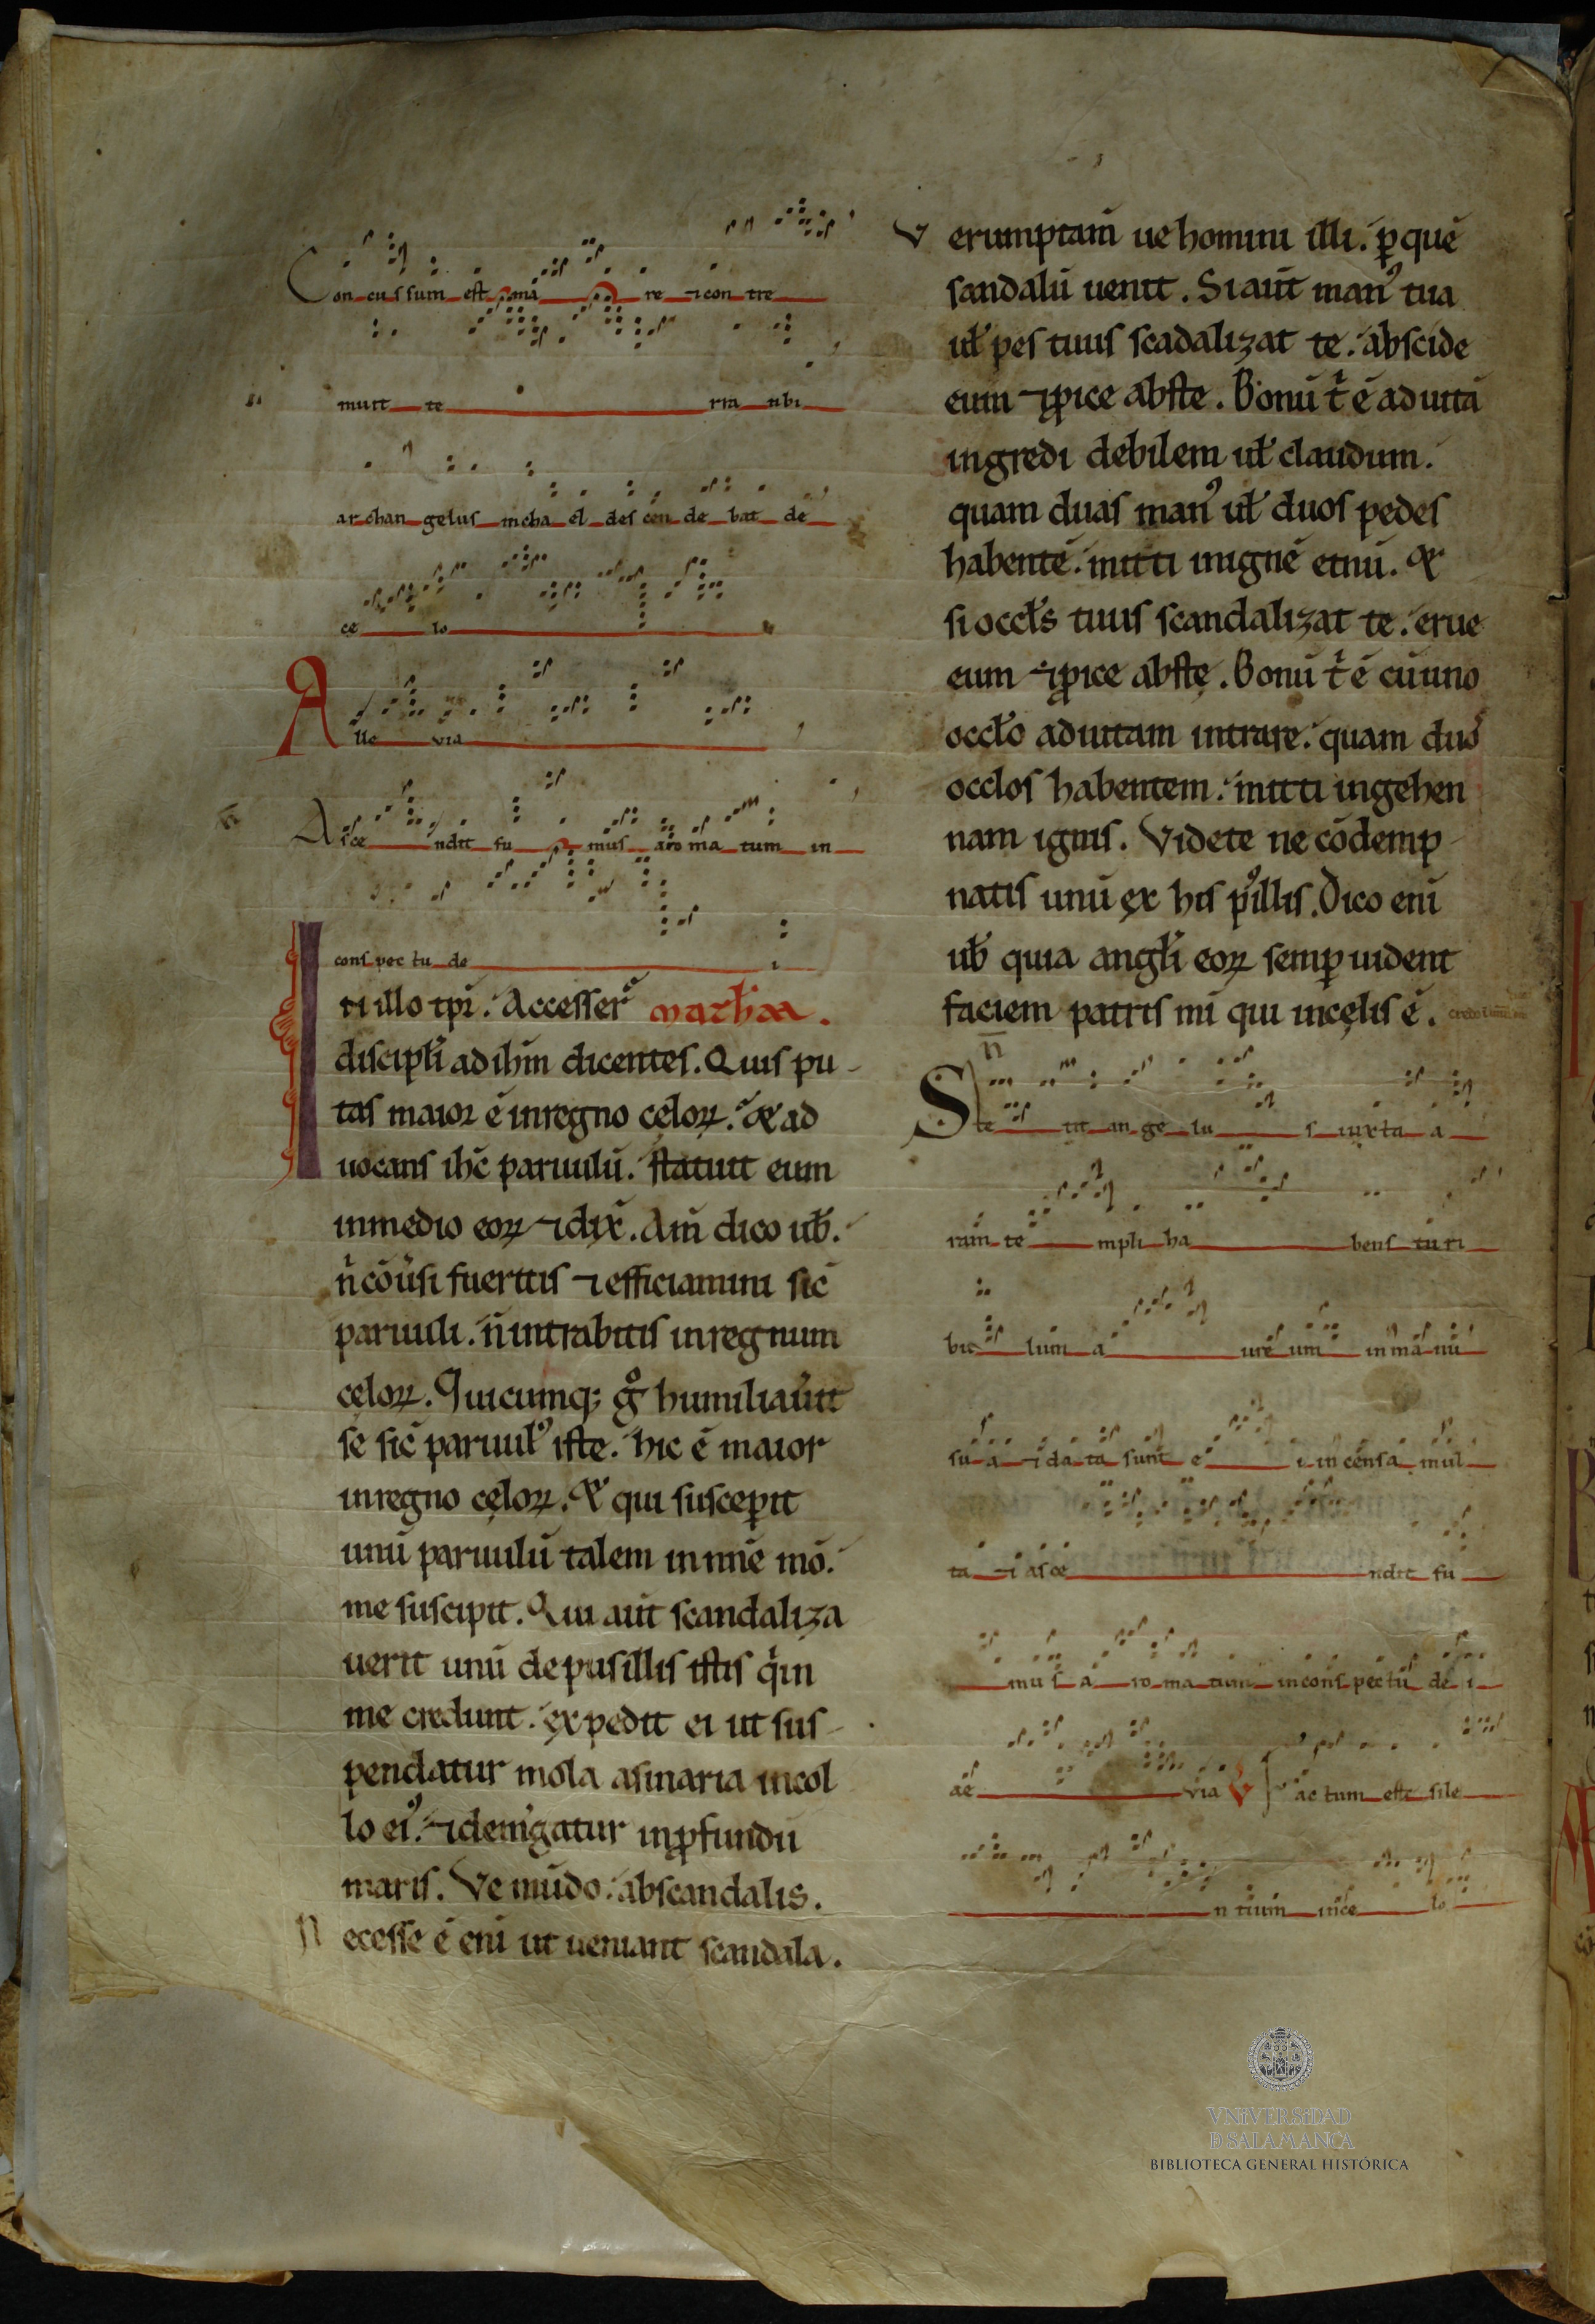 Con cus sum est ma re ⁊ con tre
muit te rra ubi
ar chan gelus micha el des cen de bat de
ce lo
A lle via
Asce ndit fu mus aro ma tum in
cons pec tu de i
In illo tp̄r. Accesser̄ math̄m.
discipl̄i ad ih̄m dicentes. Quis pu-
tas maior ē in regno cęloꝝ. Et ad
uocans ih̄c paruulū. statuit eum
in medio eoꝝ ⁊ dix̄. Am̄ dico ub̄.
n̄ cōũsi fueritis ⁊ efficiamini sic̄
paruuli. n̄ intrabitis in regnum
cęloꝝ. Quicumq; gͦ humiliau̓it
se sic̄ paruulꝰ iste. hic ē maior
in regno cęloꝝ. Et qui susceꝑit
unū paruulū talem in nn̄e mō.
me suscipit. Qui aut̄ scandaliza
uerit unū de pusillis istis q̇ in
me credunt. expedit ei ut sus-
pendatur mola asinaria in col
lo eiꝰ. ⁊ dem̓gatur in ꝓfundū
maris. Ve mūdo. ab scandalis.
Necesse ē eni̅ ut ueniant scandala.
Verumptam̄ ue homini illi. ꝑ quē
scandalū uenit. Si aut̄ manꝰ tua
ul̄ pes tuus scadalizat te. abscide
eum ⁊ ꝓice abs te. Bonū t̓ ē ad uitā
ingredi debilem ul̄ claudum.
quam duas manꝰ ul̄ duos pedes
habentē. mitti in ignē et̄nū. Et
si occl̄s tuus scandalizat te. erue
eum ⁊ ꝓice abs te. Bonū t̓ ē cū uno
occl̄o ad uitam intrare. quam duos
occlos habentem. mitti in gehen
nam ignis. Videte ne cōdemp-
natis unū ex his pꝰillis. Dico eni̅
ub̄ quia angl̄i eoꝝ semꝑ uident
faciem patris mī qui in cęlis ē.
Ste tit an ge lu s iuxta a
ram te mpli ha bens tu ri
bu lum a ure um in ma nu
su a ⁊ da ta sunt e i in censa mul
ta ⁊ asce ndit fu
mus a ro ma tum in cons pectu de i
ae via V Fac tum est sile
n tium in ce lo
UNIVERSIDAD
D SALAMANCA
BIBLIOTECA GENERAL HISTÓRICA